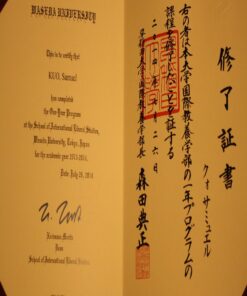 WASEDA UNIVERSITY
This is to certify that
KUO, Samuel
has completed
the One-Year Program
at the School of International Liberal Studies,
Waseda University, Tokyo, Japan
for the academic year 2013-2014.
Date: July 26, 2014
Dean
School of International Liberal Studies
修了証書
クオ サミュエル
右の者は本大学国際教養学部の一年プログラムの
課程を修了したことを証する
二〇一四年七月二六日
早稲田大学国際教養学部長
森田典正